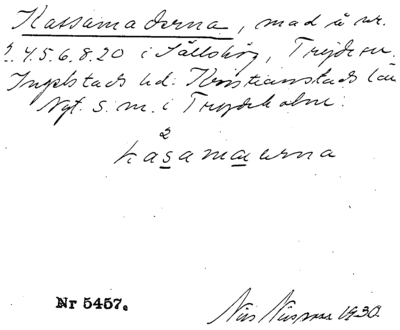 Kassamaderna, mad å nr.
2. 4. 5. 6. 8. 20 i Fälleshög, Tryde sn.
Ingelstads hd. Kristianstads län
Ngt. s. m. i Trydeholm.
2
kasamaerna
Nr 5457.
Nils Nilsson 1930.